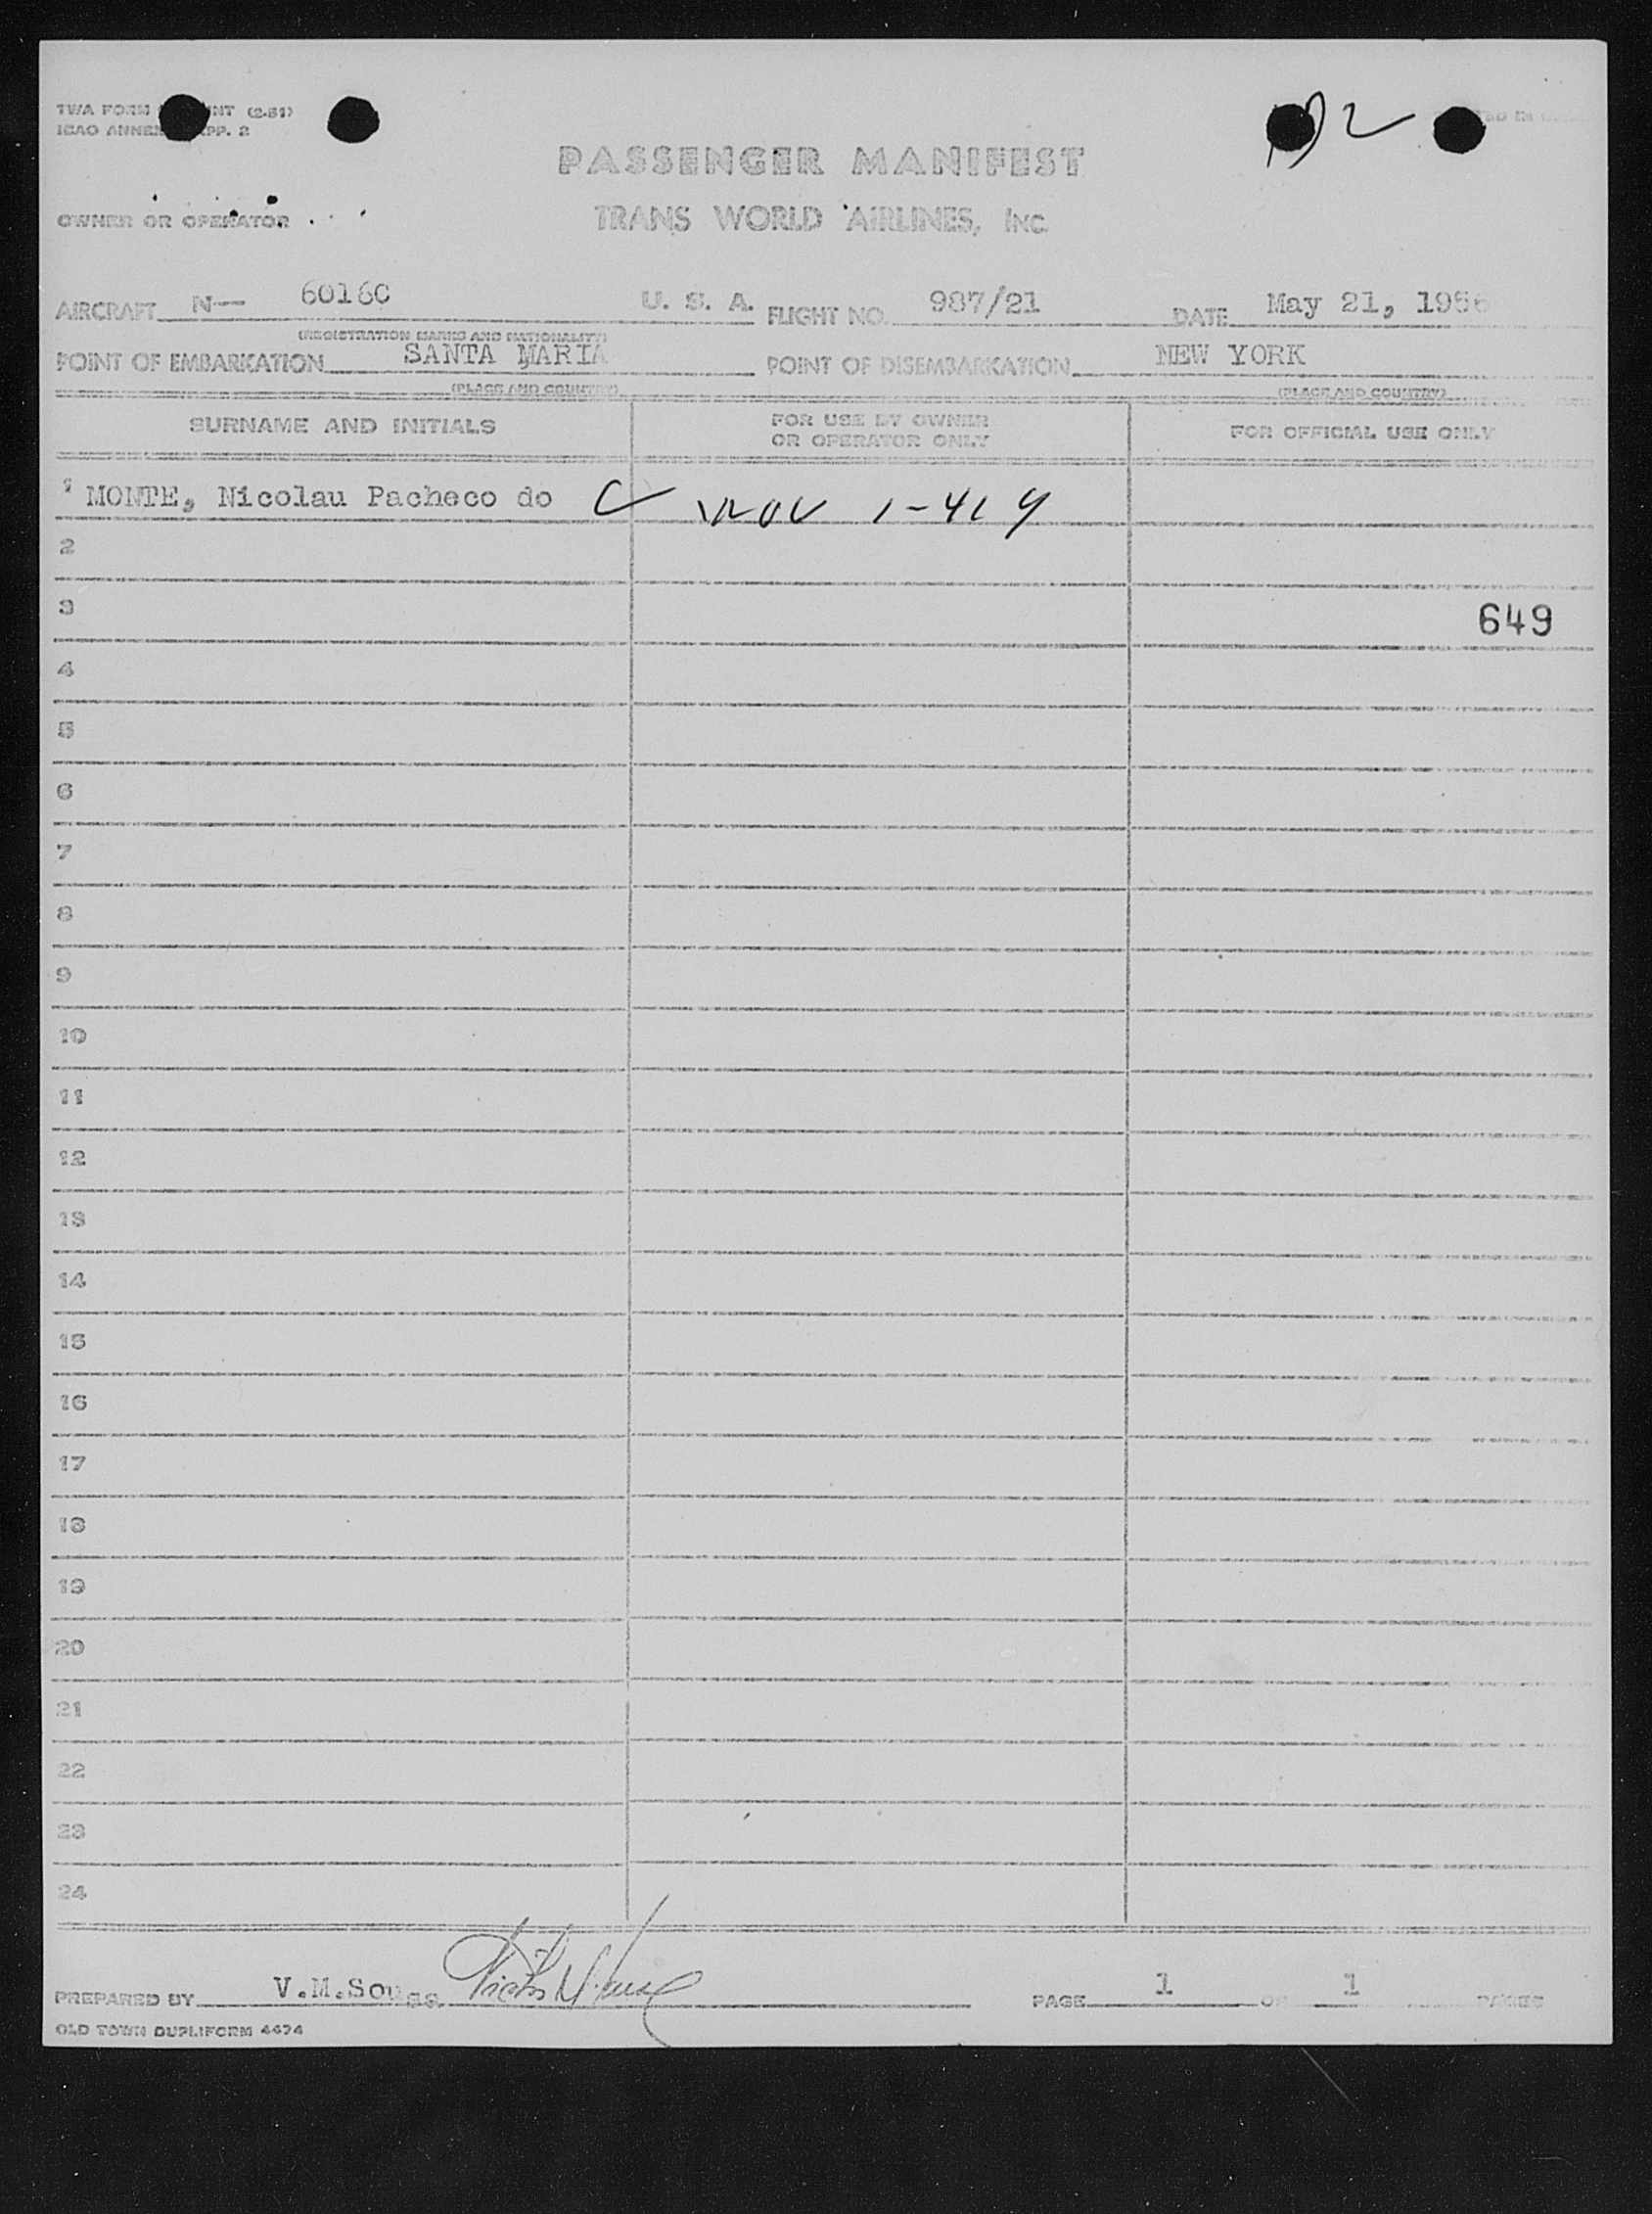 TWA FORM NT (2-51)
ICAO ANNEX APP. 2
2
PASSENGER MANIFEST
OWNER OR OPERATOR
TRANS WORLD AIRLINES, Inc.
AIRCRAFT N— 6016C U. S. A. FLIGHT NO. 987/21 DATE May 21, 1956
(REGISTRATION MARKS AND NATIONALITY)
POINT OF EMBARKATION SANTA MARIA POINT OF DISEMBARKATION NEW YORK
(PLACE AND COUNTRY) (PLACE AND COUNTRY)
SURNAME AND INITIALS FOR USE BY OWNER OR OPERATOR ONLY FOR OFFICIAL USE ONLY
1 MONTE, Nicolau Pacheco do C 1-419
2
3 649
4
5
6
7
8
9
10
11
12
13
14
15
16
17
18
19
20
21
22
23
24
PREPARED BY V.M.Sousa PAGE 1 OF 1 PAGES
OLD TOWN DUPLIFORM 4474